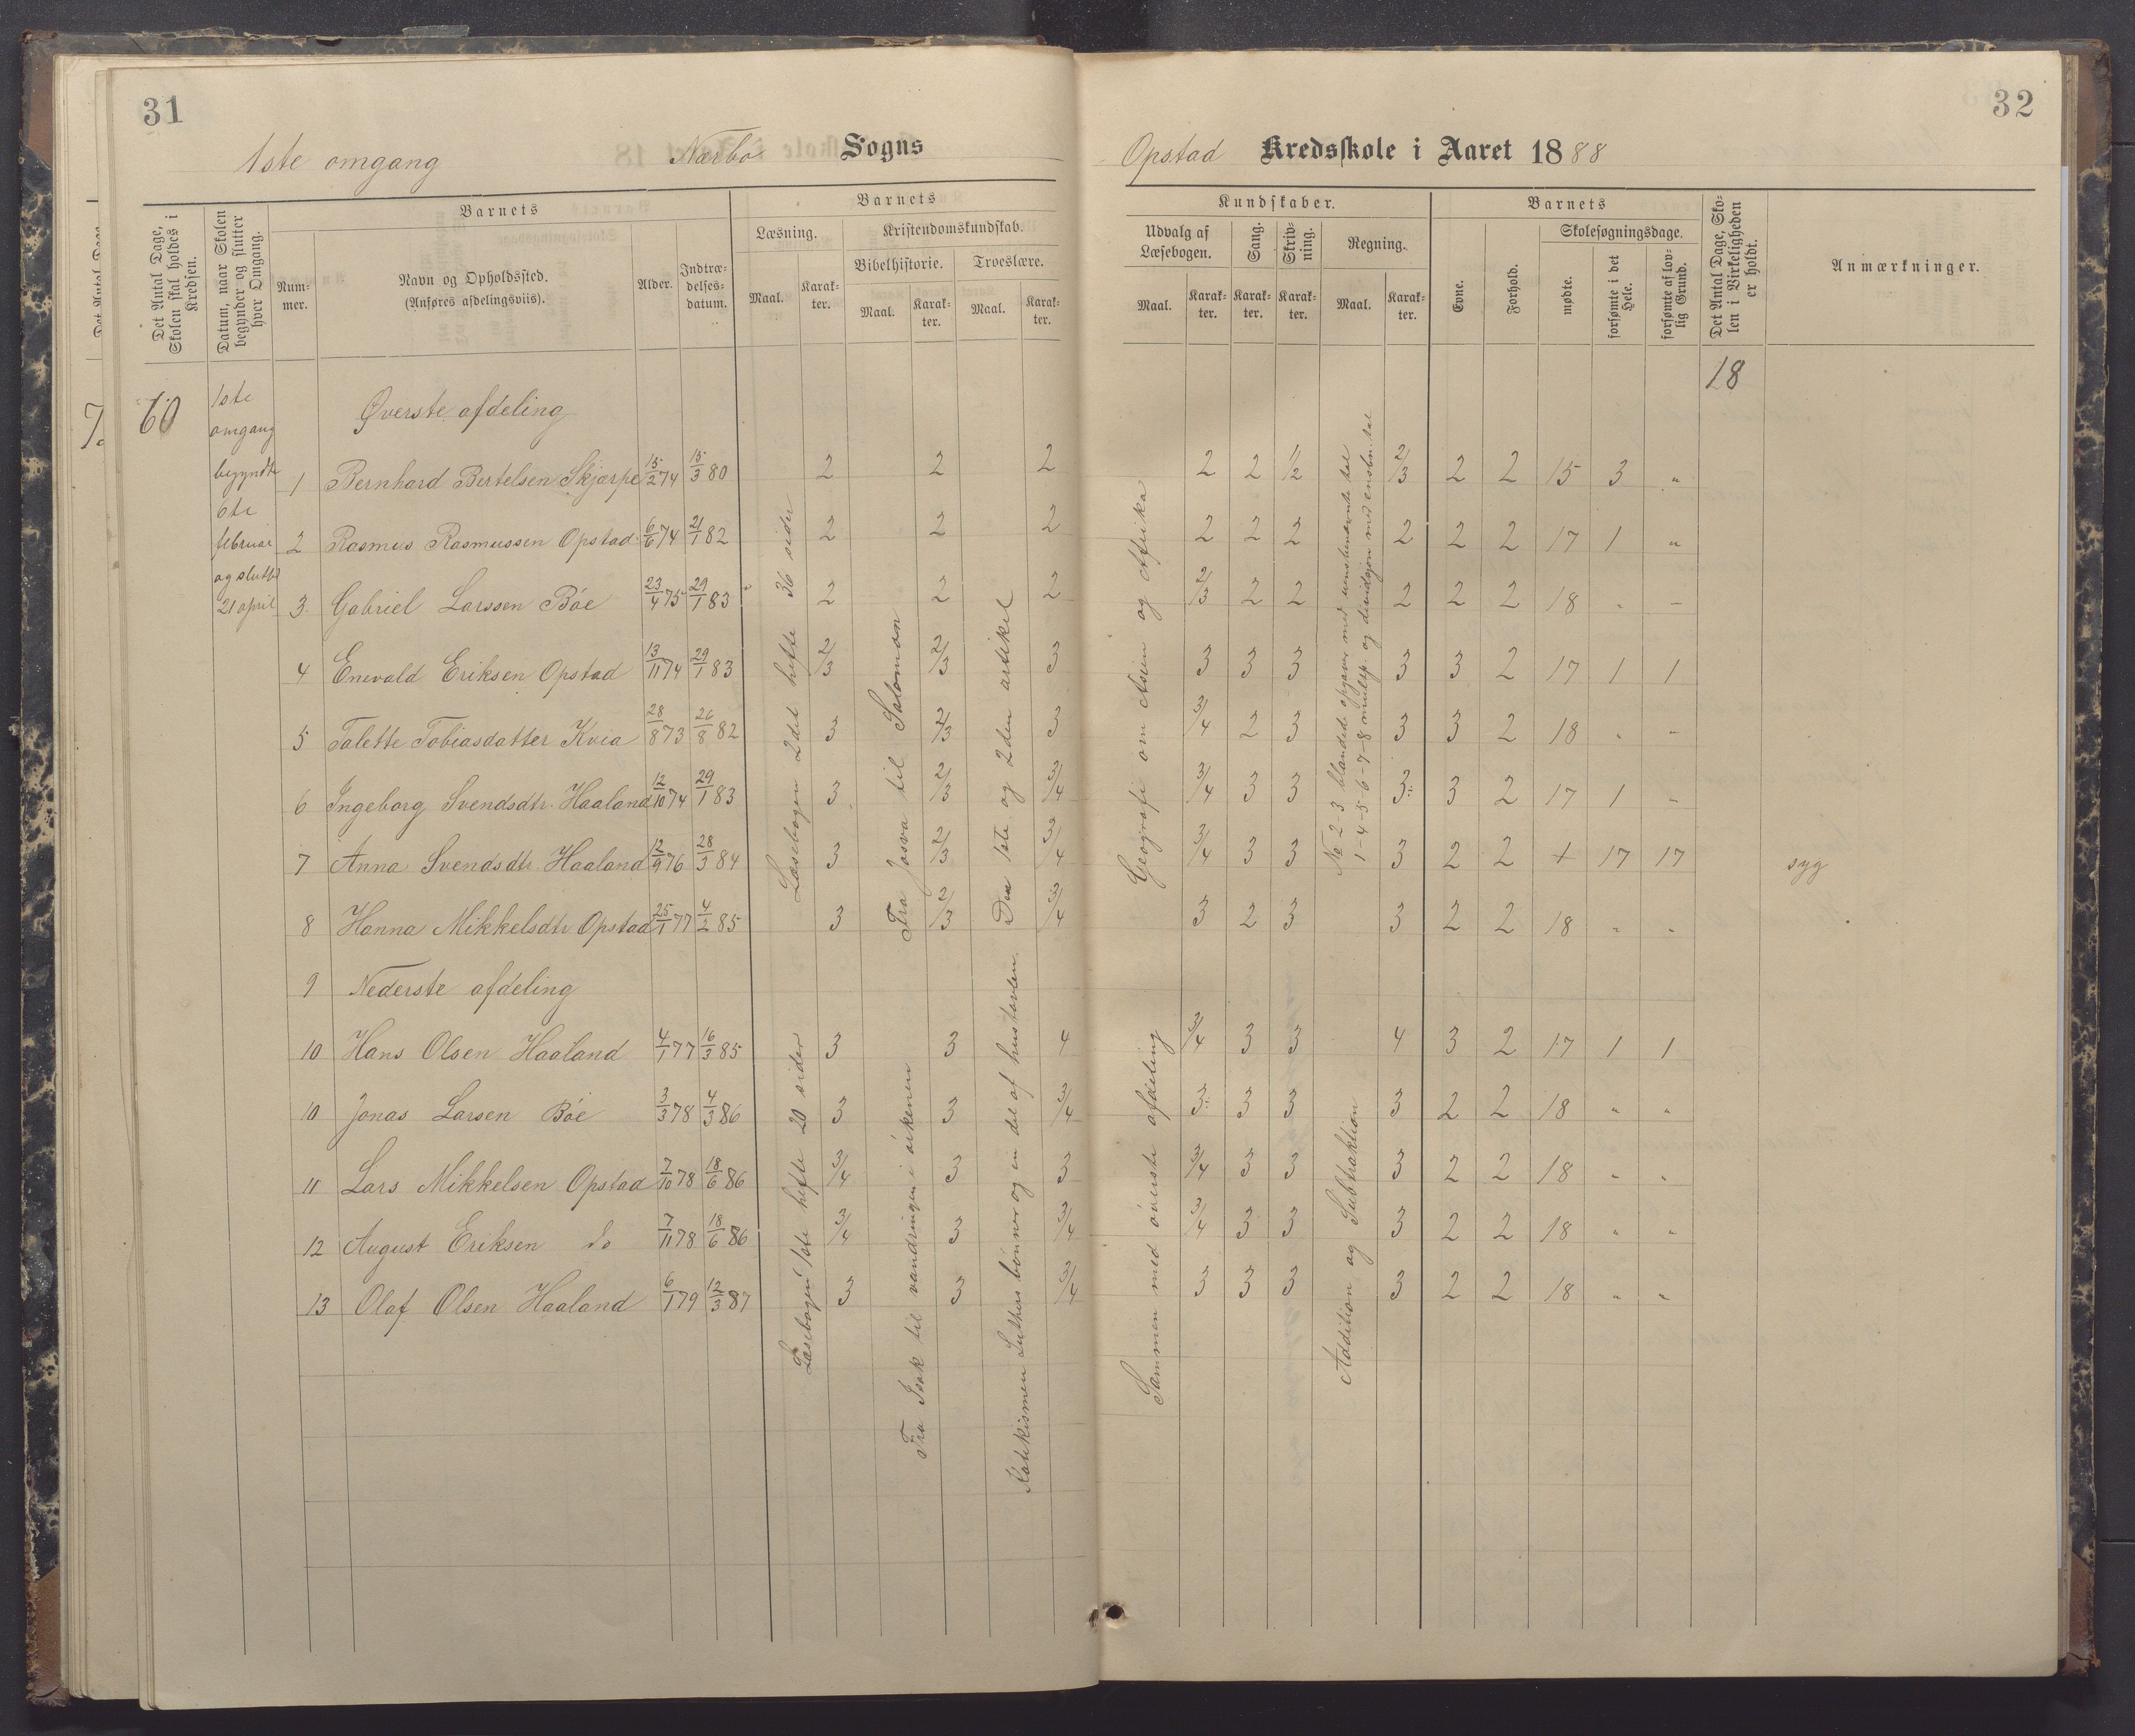 31
32
1ste omgang Nærbø Sogns
Opstad Kredsskole i Aaret 1888
Det Antal Dage, Skolen skal holdes i Kredsen.
Datum, naar Skolen begynder og slutter hver Omgang.
Barnets
Nummer.
Navn og Opholdssted.
(Anføres afdelingsviis).
Alder.
Indtrædelsesdatum.
Barnets
Læsning.
Maal.
Karakter.
Kristendomskundskab.
Bibelhistorie.
Maal.
Karakter.
Troeslære.
Maal.
Karakter.
Kundskaber.
Udvalg af Læsebogen.
Maal.
Karakter.
Sang.
Karakter.
Skrivning.
Karakter.
Regning.
Maal.
Karakter.
Barnets
Evne.
Forhold.
Skolesøgningsdage.
mødte.
forsømte i det Hele.
forsømte af lovlig Grund.
Det Antal Dage, Skolen i Virkeligheden er holdt.
Anmærkninger.
60
1ste
omgang
begyndte
6te
februar
og sluttet
21 april
18
Øverste afdeling
1 Bernhard Bertelsen Skjærpe 15/2 74 15/3 80 2 2 2 2 2 1/2 2/3 2 2 15 3 "
2 Rasmus Rasmussen Opstad 6/6 74 21/1 82 2 2 2 2 2 2 2 2 2 17 1 "
3 Gabriel Larssen Bøe 23/4 75 29/1 83 2 2 2 2/3 2 2 2 2 2 18 " –
4 Enevald Eriksen Opstad 13/11 74 29/1 83 2/3 2/3 3 3 3 3 3 3 2 17 1 1
5 Talette Tobiasdatter Kvia 28/8 73 26/8 82 3 2/3 3 3/4 2 3 3 3 2 18 " "
6 Ingeborg Svendsdtr. Haaland 12/10 74 29/1 83 3 2/3 3/4 3/4 3 3 3 3 2 17 1 "
7 Anna Svendsdtr. Haaland 12/9 76 28/3 84 3 2/3 3/4 3/4 3 3 3 2 2 + 17 17 syg
8 Hanna Mikkelsdtr Opstad 25/1 77 4/2 85 3 2/3 3/4 3 2 3 3 2 2 18 " "
9 Nederste afdeling
10 Hans Olsen Haaland 4/1 77 16/3 85 3 3 4 3/4 3 3 4 3 2 17 1 1
10 Jonas Larsen Bøe 3/3 78 4/3 86 3 3 3/4 3 3 3 3 2 2 18 " "
11 Lars Mikkelsen Opstad 7/10 78 18/6 86 3/4 3 3 3/4 3 3 3 2 2 18 " "
12 August Eriksen do 7/11 78 18/6 86 3/4 3 3/4 3/4 3 3 3 2 2 18 " "
13 Olaf Olsen Haaland 6/1 79 12/3 87 3 3 3/4 3 3 3 3 2 2 18 " "
Læsebogen 2det hefte 36 sider
Fra Josva til Salomon
1ste og 2den artikel
Geografi om Asien og Afrika
No 2-3 blandede opgaver med uensbenævnte tal
1-4-5-6-7-8 multip. og dividsjon med ensbn. tal
Læsebogen 1ste hefte 20 sider
Fra Isak til vandringen i ørkenen
Katekismen Luthers bønner og en del af hustavlen.
Sammen med øverste afdeling
Addition og Subtraktion